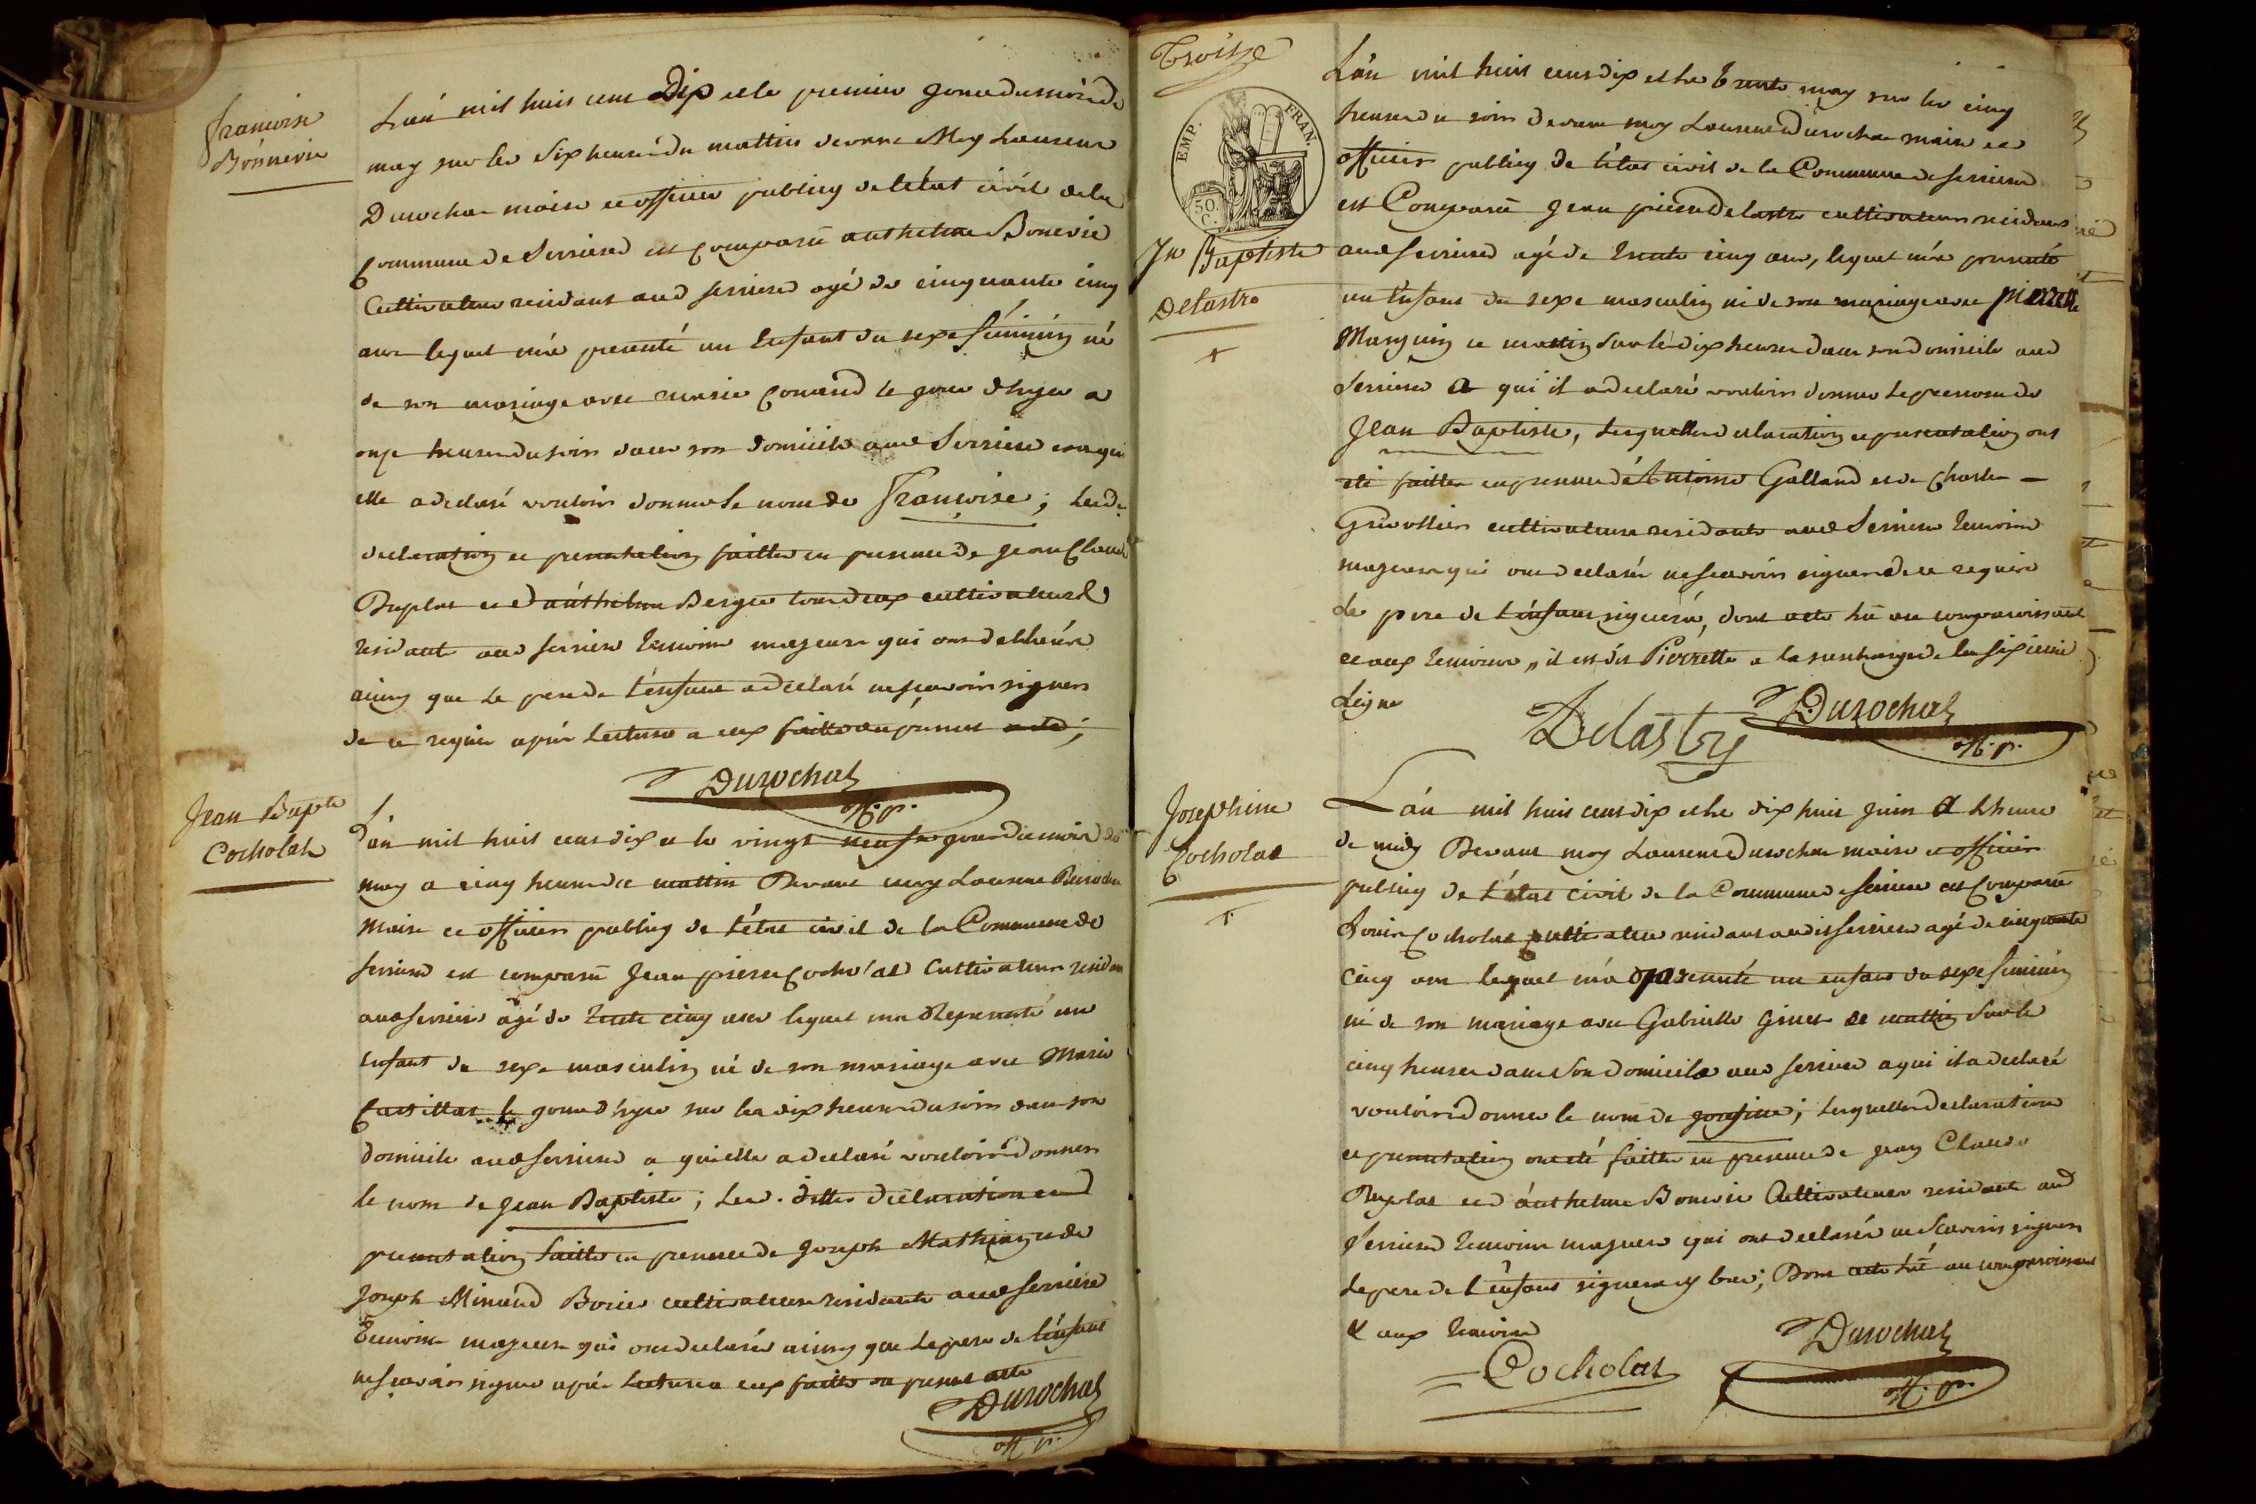 françoise
Bonnevie
L'an mil huit cent Dix et le premier jour du mois de
may sur les six heures du mattin devant Moy Laurent
Durochat maire et officier publiq de l'état civil de la
Commune de Serrieres est comparu anthelme Bonevie
Cultivateur residant aud serrieres agé de cinquante cinq
ans lequel m'a presenté un Enfant du sexe féminin né
de son mariage avec marie le jour d'hyer a
onze heures du soir dans son domicile aud Serriere
elle a declaré vouloir donner le nom de Françoise ; Lesd.
declaration et presentation faittes en presence de jean Claude
Duplat et d'anthelme Berger tous deux cultivateurs
residants aud serriere temoins majeurs qui ont dellaré
ainsy que le pere de l'enfant a declaré ne scavoir signer
de ce requis aprés Lecture a eux faitte du present acte ;
Durochat
off. p.
Jean Bapte
Cocholat
L'an mil huit cent dix et le vingt neuf jour du mois de
may a cinq heures de mattin Devant moy Laurent Durochat
Maire et officier publiq de l'état civil de la Commune de
serriere est comparu Jean pierre Cocholat Cultivateur residant
aud serriere agé de trente cinq ans lequel ma Representé un
enfant de sexe masculin né de son mariage avec Marie
le jour d'hyer sur les dix heures du soir dans son
domicile aud serrieres a qui elle a declaré vouloir donner
le nom de jean Baptiste ; Lesd. dittes declaration et
presentation faitte en presence de joseph Mathian et de
joseph Minand cultivateurs residants aud serriere
temoins majeurs qui ont declarés ainsy que le pere de l'enfant
ne scavoir signer aprés Lecture a eux faitte du present acte
Durochat
off. p.
Troisze
EMP. FRAN.
50. C.
Jn Baptiste
Delastre
L'an mil huit cent dix et le trente may sur les cinq
heures du soir devant moy Laurent Durochat maire et
officier publiq de l'état civil de la Commune de serriere
est Comparu jean pierre Delastre cultivateur residant
aud serrieres agé de trente cinq ans, lequel m'a presenté
un Enfant du sexe masculin né de son mariage avec pierrette
Manguin ce mattin sur les dix heures dans son domicile aud
Serriere a qui il a declaré vouloir donner le prenom de
Jean Baptiste, Lesquelles declaration et presentation ont
eté faittes en presence d'Antoine Galland et de Charles
cultivateurs residants aud Serriere temoins
majeurs qui ont declarés ne scavoir signer de ce requis
Le pere de l'enfant signera, dont acte lu au comparoissant
et aux temoins, il est dit Pierrette a la surcharge de la sixieme
Ligne
Delastre
Durochat
off. p.
Josephine
Cocholat
L'an mil huit cent dix et le dix huit juin a l'heure
de midy Devant moy Laurent Durochat maire et officier
publiq de l'état civil de la Commune de serriere est Comparu
Cocholat cultivateur residant audit serriere agé de cinquante
cinq ans lequel m'a presenté un enfant du sexe féminin
né de son mariage avec Gabrielle ginet ce mattin sur le
cinq heures dans son domicile aud serriere a qui il a declaré
vouloir donner le nom de josefine ; Lesquelles declaration
et presentation ont eté faittes en presence de jean Claude
Duplat et d'anthelme Bonevie Cultivateurs residants aud
Serriere temoins majeurs qui ont declarés ne scavoir signer
Le pere de l'enfant signera cy bas ; Dont acte lu au comparoissant
& aux temoins
Cocholat
Durochat
off. p.